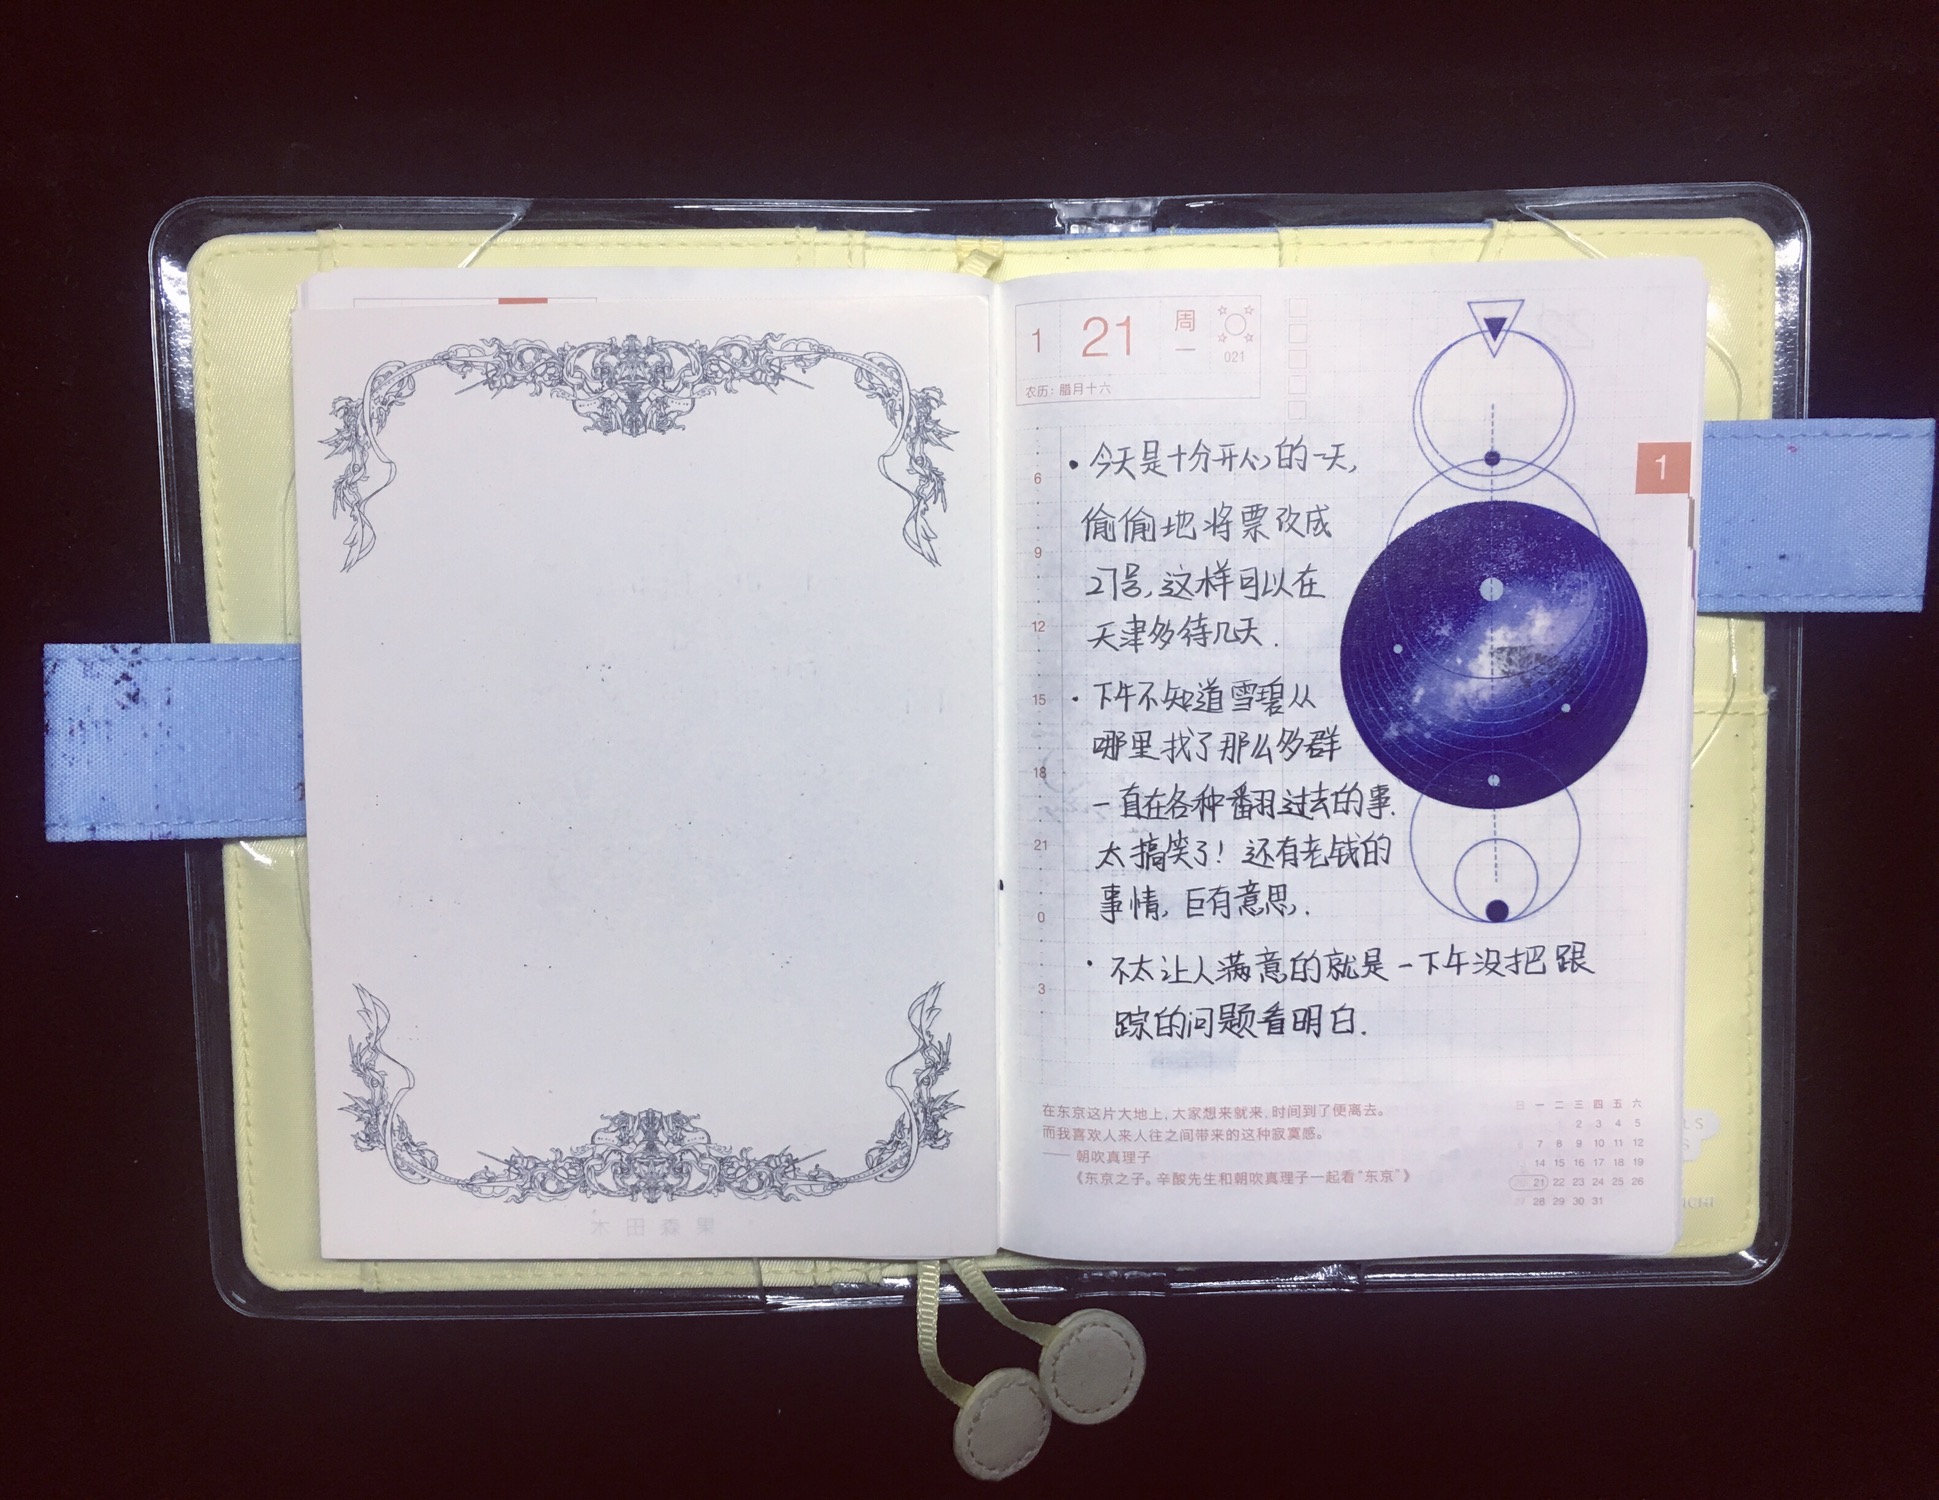 1 21 周一
021
农历：腊月十六
1
·今天是十分开心的一天，
偷偷地将票改成
27号，这样可以在
天津多待几天.
·下午不知道雪碧从
哪里找了那么多群
一直在各种翻过去的事.
太搞笑了！还有老钱的
事情，巨有意思.
·不太让人满意的就是一下午没把跟
踪的问题看明白.
6
9
12
15
18
21
0
3
在东京这片大地上，大家想来就来，时间到了便离去。
而我喜欢人来人往之间带来的这种寂寞感。
—— 朝吹真理子
《东京之子。辛酸先生和朝吹真理子一起看“东京”》
日 一 二 三 四 五 六
2 3 4 5
7 8 9 10 11 12
14 15 16 17 18 19
21 22 23 24 25 26
28 29 30 31
木田森果